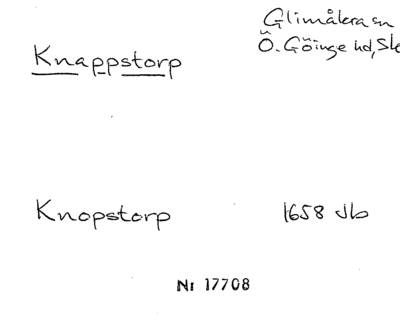 Glimåkra sn
Knappstorp
Ö. Göinge hd, Sk
Knopstorp
1658 Jb
Nr 17708